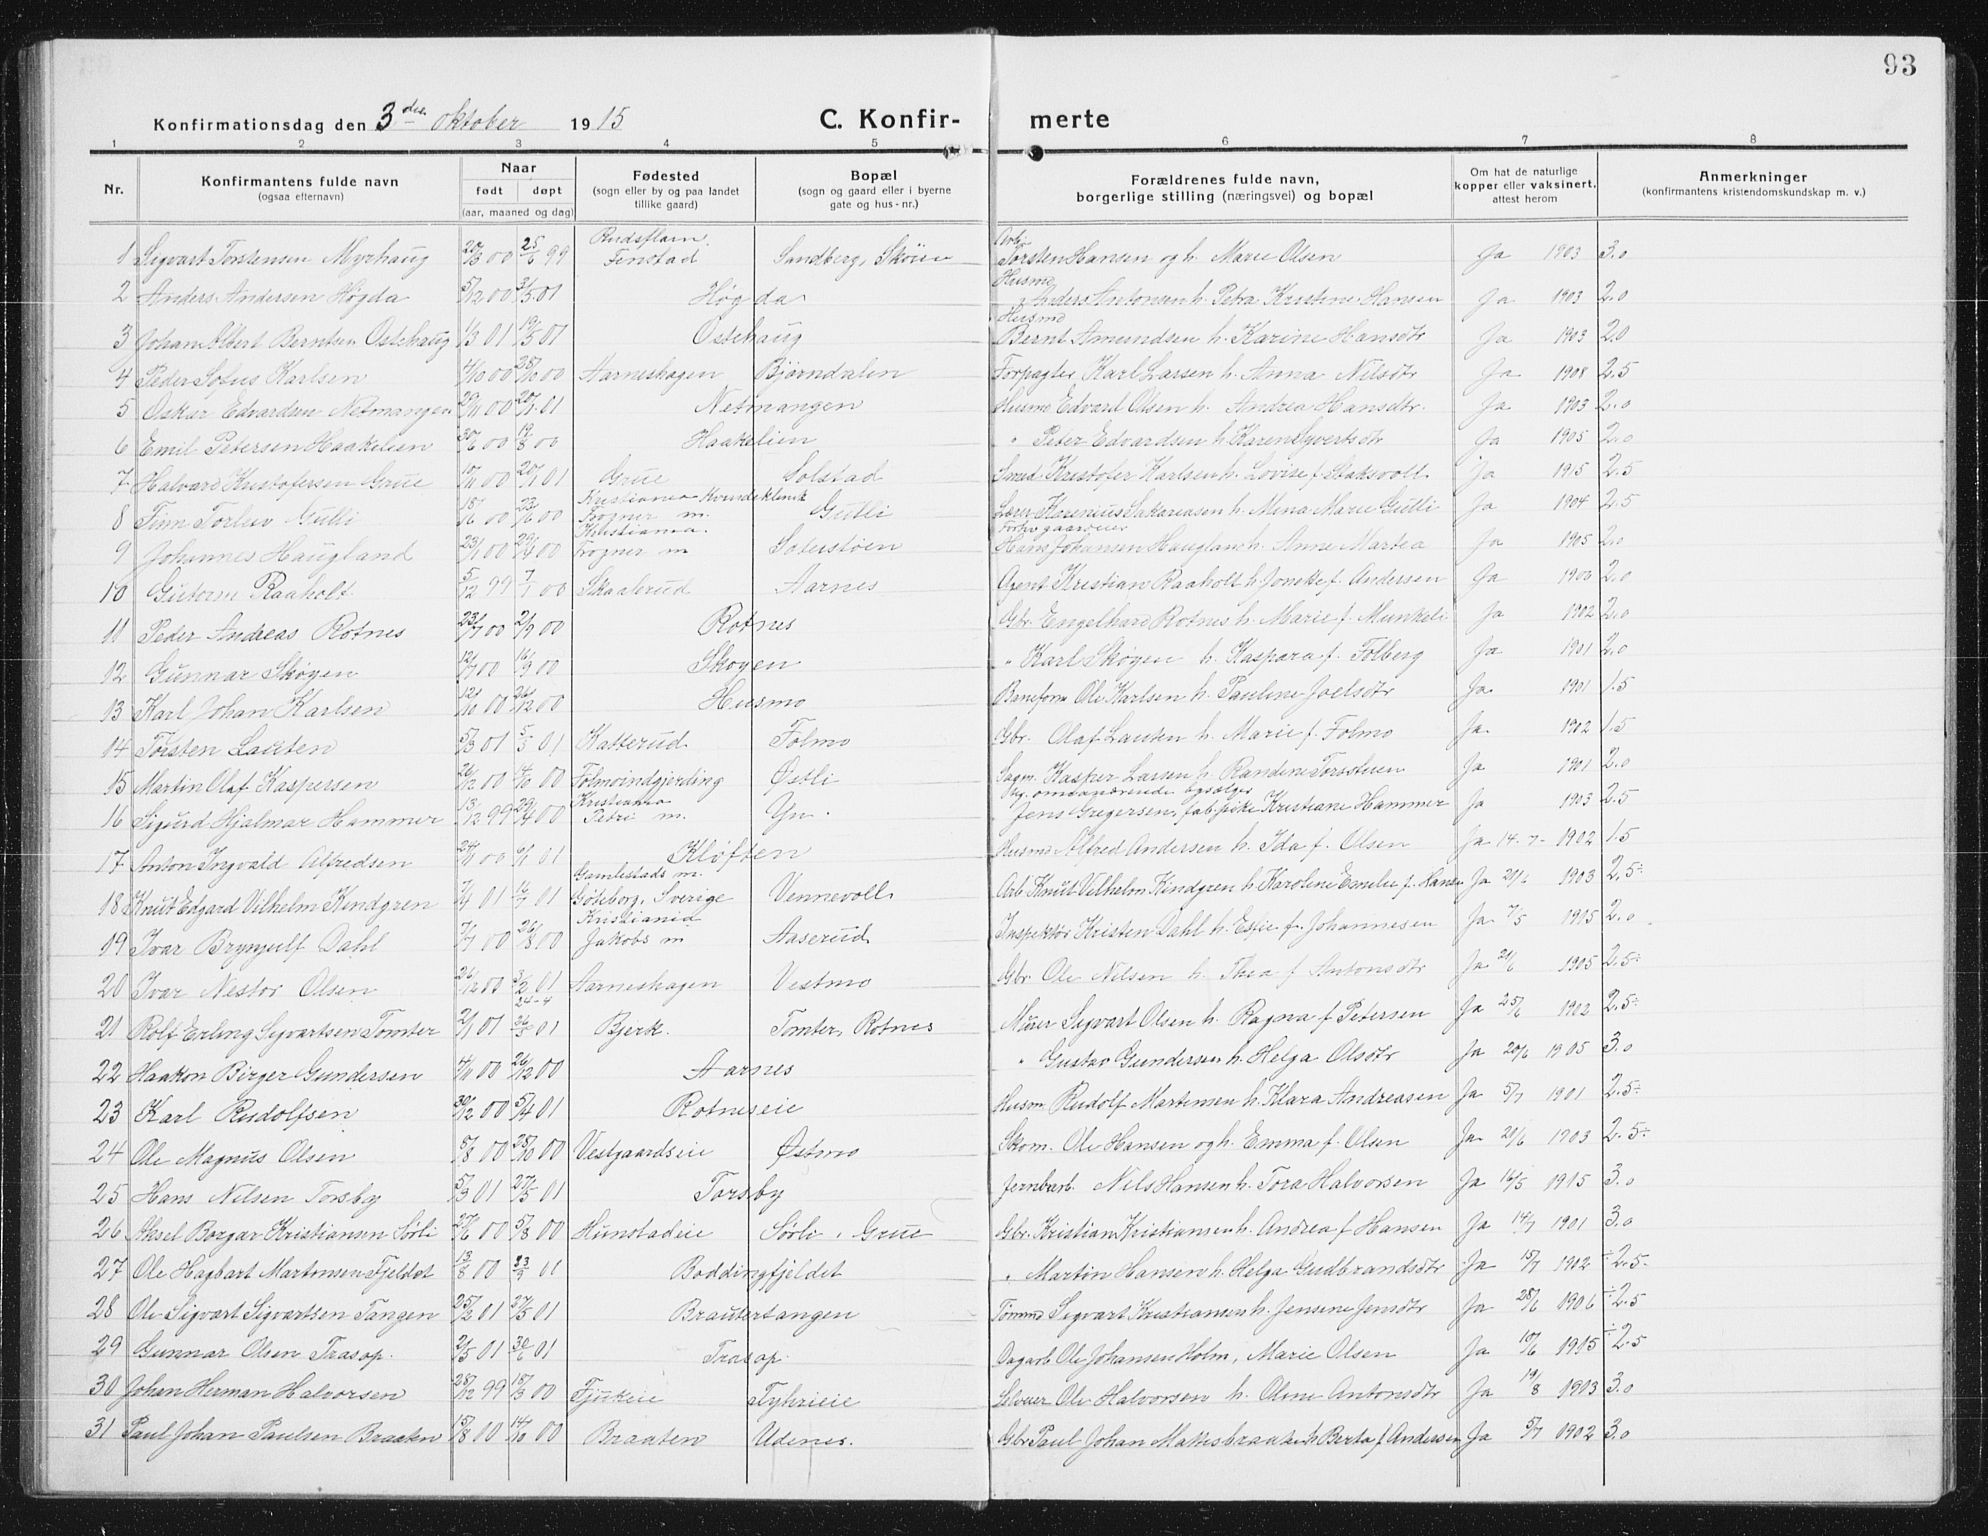 93
Konfirmationsdag den 3die oktober 1915 C. Konfirmerte
1 2 3 4 5 6 7 8
Nr. Konfirmantens fulde navn (ogsaa efternavn) Naar født døpt (aar, maaned og dag) Fødested (sogn eller by og paa landet tillike gaard) Bopæl (sogn og gaard eller i byerne gate og hus-nr.) Forældrenes fulde navn, borgerlige stilling (næringsvei) og bopæl Om hat de naturlige kopper eller vaksinert, attest herom Anmerkninger (konfirmantens kristendomskundskap m. v.)
1 Sigvart Torstensen Myrhaug 00 25/6 99 Fenstad Sandberg, Skøien Arb. Torsten Hansen og h. Marie Olsen Ja 1903 3.0
2 Anders Andersen Høgda 5/12 00 3/5 01 Høgda Husmd Anders Antonsen h. Petra Kristine Hansen Ja 1903 2.0
3 Johan Albert Berntsen Ostehaug 1/3 01 19/5 01 Ostehaug Husmd Bernt Amundsen h. Karine Hansdtr Ja 1903 2.0
4 Peder Sofus Karlsen 4/10 00 28/10 00 Aarneshagen Bjørndalen Forpagter Karl Larsen h. Anna Nilsdtr Ja 1908 2.5
5 Oskar Edvardsen Netmangen 29/11 00 20/1 01 Netmangen Husmd Edvard Olsen h. Andrea Hansdtr. Ja 1903 2.0
6 Emil Petersen Haakelien 30/6 00 19/8 00 Haakelien " Peter Edvardsen h. Karen Syvertsdtr Ja 1905 2.0
7 Halvard Kristofersen Grue 10/11 00 20/1 01 Grue Solstad Smed Kristofer Karlsen h. Lovise f. Staksvold Ja 1915 2.5
8 Finn Torleiv Gutli 18/6 00 23/6 00 Kristiania Kvindeklinik Frogner m. Gutli Lærer Karenius Sakariasen h. Mina Marie Gutli Ja 1904 2.5
9 Johannes Haugland 23/1 00 29/4 00 Kristiania Frogner m Soterstøen Forhv gaardeier Hans Johansen Haugland h. Anne Martea Ja 1905 2.0
10 Gutorm Raaholt 5/12 99 7/1 00 Skaaterud Aarnes Agent Kristian Raaholt h. Jonette f. Andersen Ja 1900 2.0
11 Peder Andreas Rotnes 23/7 00 2/9 00 Rotnes Gbr. Engelhard Rotnes h. Marie f. Munkeli Ja 1902 2.0
12 Gunnar Skøyen 12/7 00 16/9 00 Skoyen " Karl Skøyen h. Kaspara f. Folberg Ja 1901 2.0
13 Karl Johan Karlsen 12/10 00 26/12 00 Husmo Baneform Ole Karlsen h. Pauline Joelsdtr Ja 1901 1.5
14 Torsten Lauten 5/3 01 5/5 01 Katterud Folmo Gbr. Olaf Lauten h. Marie f. Folmo Ja 1902 1.5
15 Martin Olaf Kaspersen 26/12 00 14/10 00 Folmoindgjerding Østli Sagm. Kasper Larsen h. Randine Torsdtr Ja 1901 2.0
16 Sigurd Hjalmar Hammer 13/12 99 29/4 00 Kristiania Petri m. Yn Jens Gregersen, fab. pike Kristiane Hammer Ja 1903 2.5
17 Anton Ingvald Alfredsen 24/10 00 6/1 01 Kløften Husmd Alfred Andersen h. Ida f. Olsen Ja 14-7-1902 1.5
18 Knut Edgard Vilhelm Kindgren 7/4 01 14/7 01 Gamlestads m. Gøteborg, Sverige Vennevoll Arb. Knut Vilhelm Kindgren h. Karoline Emelie f. Hansen Ja 21/6 1903 2.5÷
19 Ivar Brynjulf Dahl 7/7 00 26/8 00 Kristiania Jakobs m Aaserud Inspektør Kristen Dahl h. Esfie f. Johannesen Ja 7/5 1915 2.0
20 Ivar Nestor Olsen 26/12 00 3/2 01 Aarneshagen Vestmo Gbr. Ole Nilsen h. Thea f Antonsdtr Ja 21/6 1905 2.5÷
21 Rolf Erling Sigvartsen Tomter 2/1 01 24-4 26/5 01 Bjerk. Tomter, Rotnes Murer Sigvart Olsen h. Ragna f Petersen Ja 25/6 1902 2.5÷
22 Haakon Birger Gundersen 4/11 00 26/12 00 Aarnes " Gustav Gundersen h. Helga Olsdtr Ja 20/6 1905 3.0
23 Karl Rudolfsen 30/12 00 5/4 01 Rotneseie Husm Rudolf Martinsen h. Klara Andreasen Ja 5/7 1901 2.5÷
24 Ole Magnus Olsen 5/8 00 28/10 00 Vestgaardseie Østmo Skom. Ole Hansen og h. Emma f. Olsen Ja 21/6 1903 2.5÷
25 Hans Nilsen Torsby 5/3 01 27/5 01 Torsby Jernbarb. Nils Hansen h. Tora Halvorsen Ja 16/5 1915 3.0
26 Aksel Borgar Kristiansen Sørli 27/6 00 5/8 00 Hunstadeie Sørli, Grue Gbr. Kristian Kristiansen h. Andrea f Hansen Ja 14/7 1901 3.0
27 Ole Hagbart Martinsen Fjeldet 13/8 00 23/9 01 Boddingfjeldet " Martin Hansen h. Helga Gudbrandsdtr Ja 15/7 1902 ÷2.5
28 Ole Sigvart Sigvartsen Tangen 25/2 01 27/5 01 Brautertangen Tømmd Sigvart Kristiansen h. Jensine Jensdtr Ja 28/6 1906 ÷2.5
29 Gunnar Olsen Trasop. 2/5 01 30/6 01 Trasop. Dagarb Ole Johansen Holm, Marie Olsen Ja 10/6 1915 ÷2.5
30 Johan Herman Halvorsen 28/12 99 18/3 00 Fjukeie Tyhrieie Selveier Ole Halvorsen h. Oline Antonsdtr Ja 19/8 1903 3.0
31 Paul Johan Paulsen Braaten 15/8 00 14/10 00 Braaten Udenes. Gbr Paul Johan Mattisbraaten h Berta f Andersen Ja 5/7 1902 3.0